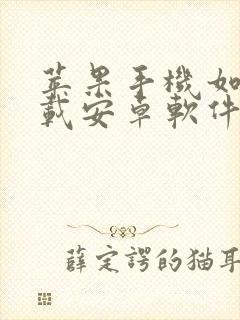 蘋果手機如
載安卓軟件
薛定諤的猫耳